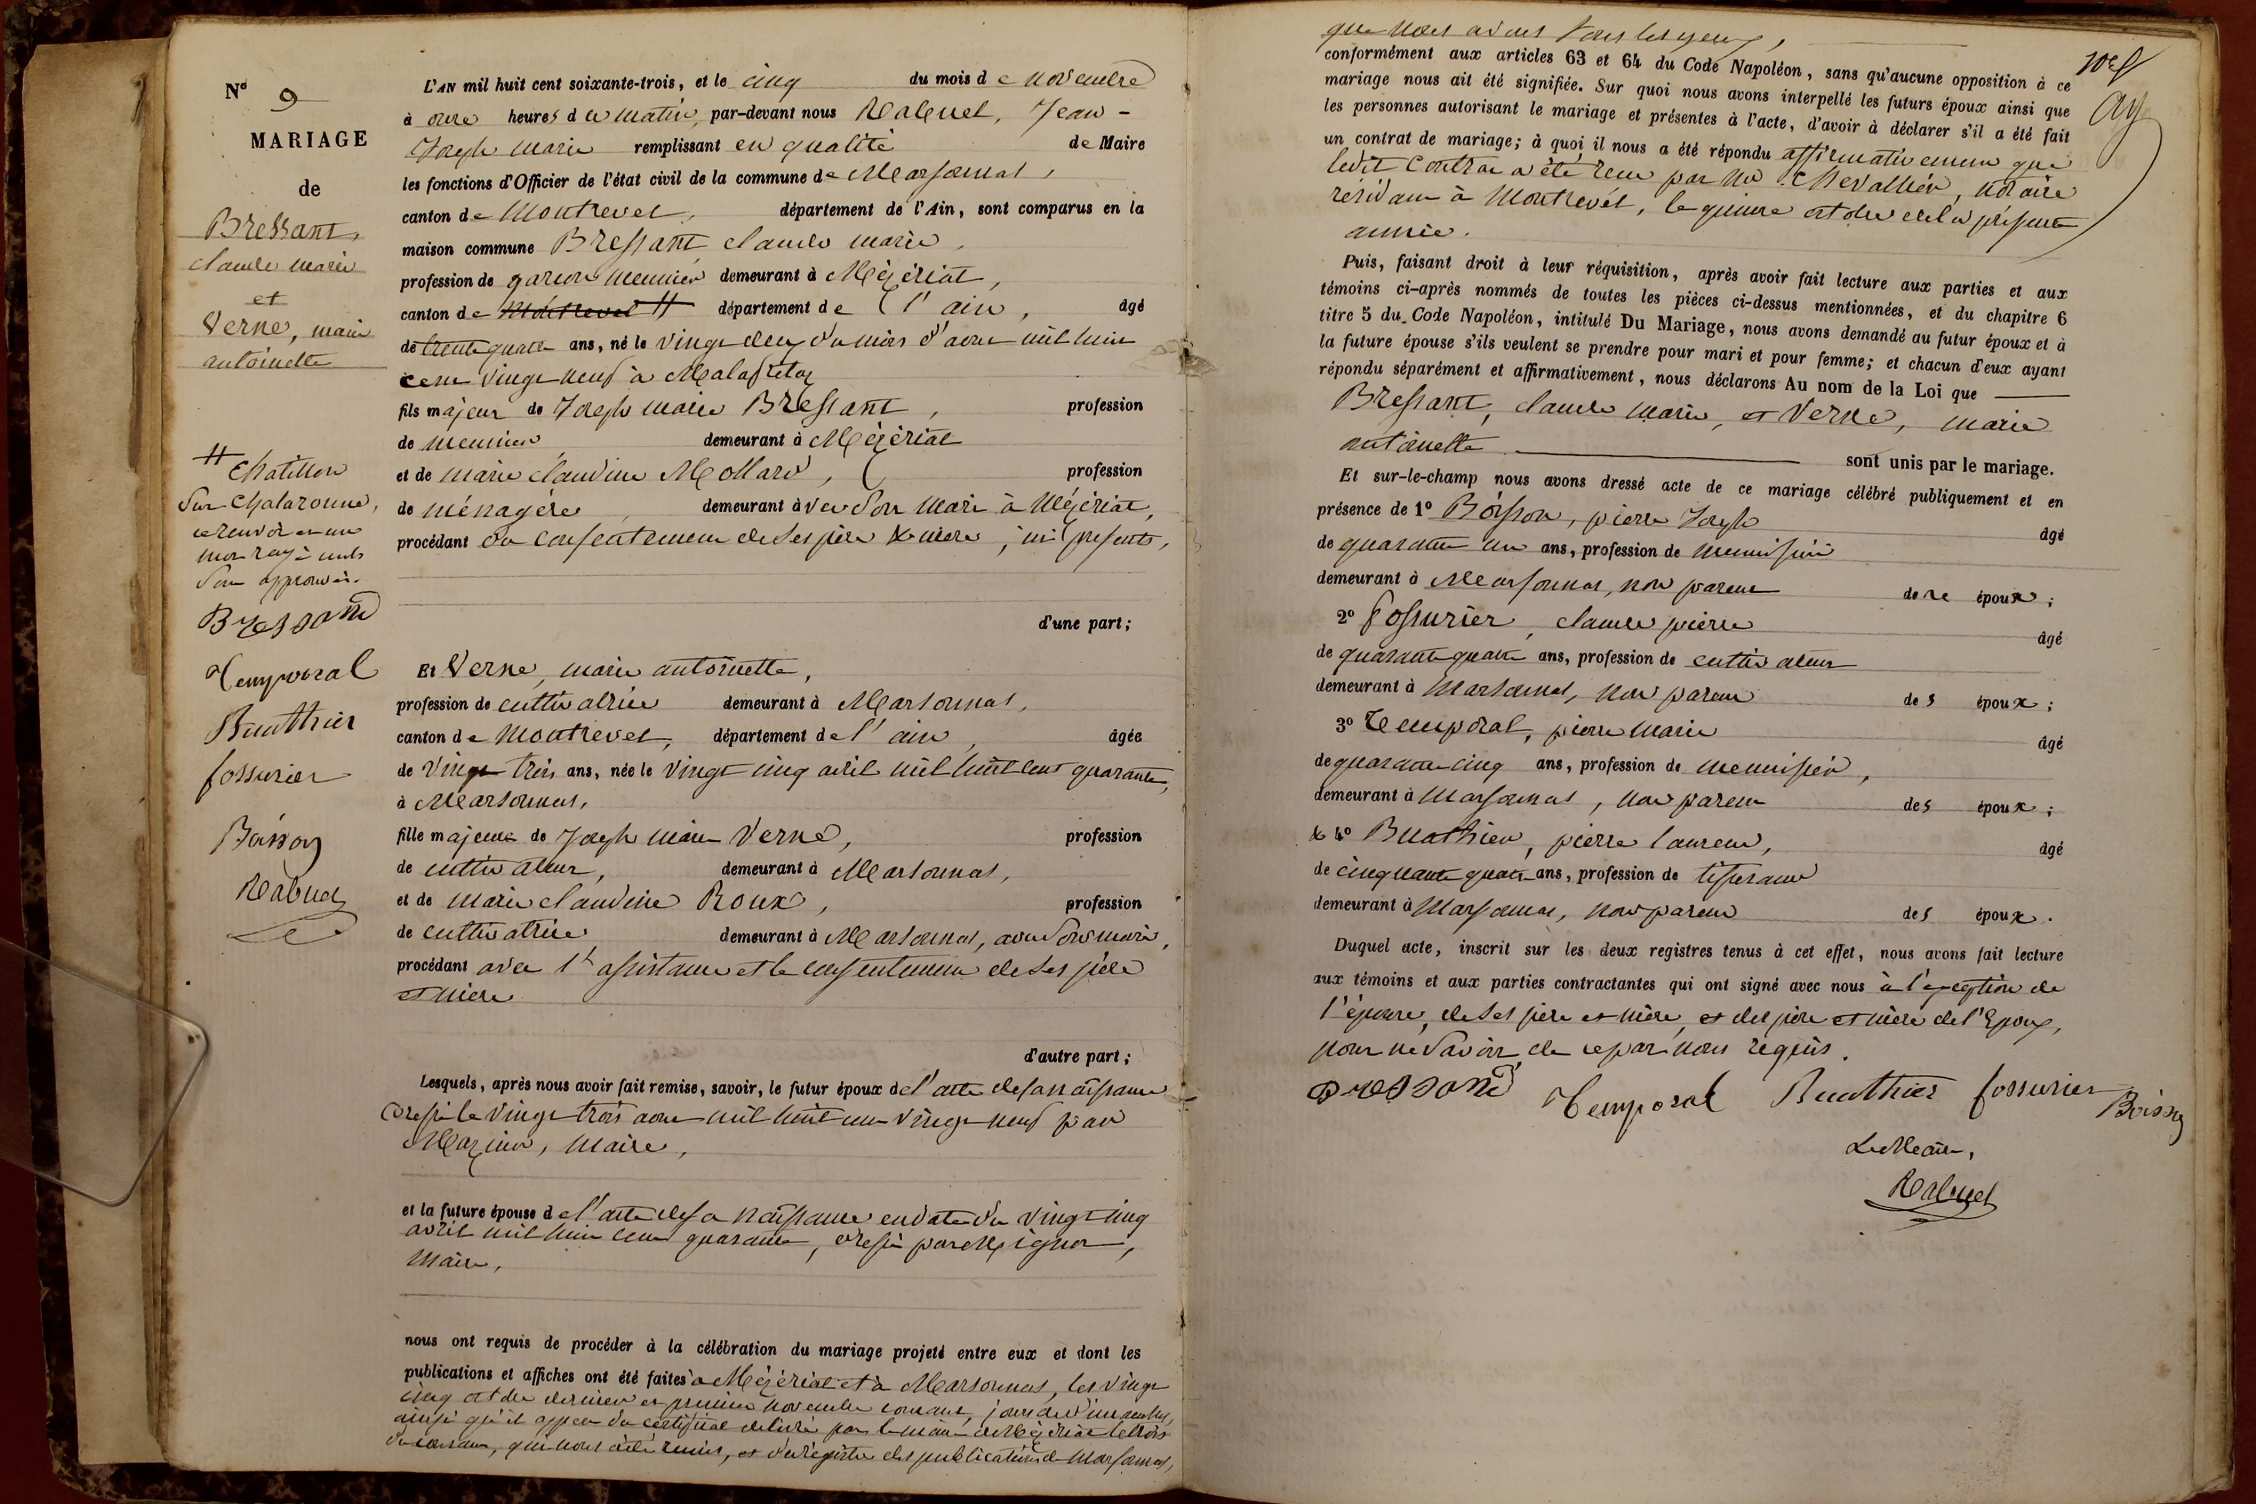 N° 9
MARIAGE
de
Bressant,
claude marie
et
Verne, marie
antoinette
# Chatillon
sur Chalaronne,
ce renvoi et un
mot rayé nuls
sont approuvés.
Bressant
Temporal
Buathier
fossurier
Boisson
Rabuel
L'AN mil huit cent soixante-trois, et le cinq du mois de novembre
à onze heures du matin, par-devant nous Rabuel, Jean-
Joseph marie remplissant en qualité de Maire
les fonctions d'Officier de l'état civil de la commune de Marsonnas,
canton de Montrevel, département de l'Ain, sont comparus en la
maison commune Bressant, claude marie,
profession de garçon meunier demeurant à Mézériat,
canton de Montrevel # département de l'ain, âgé
de trente quatre ans, né le vingt deux du mois d'aout mil huit
cent vingt neuf à Malafretaz
fils majeur de Joseph marie Bressant, profession
de meunier demeurant à Mézériat
et de marie claudine Mollard, profession
de ménagère, demeurant avec son mari à Mézériat,
procédant du consentement de ses père & mère, ici présents,
d'une part;
Et Verne, marie antoinette,
profession de cultivatrice demeurant à Marsonnas,
canton de Montrevel, département de l'ain, âgée
de vingt trois ans, née le vingt cinq avril mil huit cent quarante,
à Marsonnas,
fille majeure de Joseph marie Verne, profession
de cultivateur, demeurant à Marsonnas,
et de marie claudine Roux, profession
de cultivatrice demeurant à Marsonnas, avec son mari,
procédant avec l'assistance et le consentement de ses père
et mère
d'autre part;
Lesquels, après nous avoir fait remise, savoir, le futur époux de l'acte de sa naissance
dressé le vingt trois aout mil huit cent vingt neuf par
Mazuir, maire,
et la future épouse de l'acte de sa naissance en date du vingt cinq
avril mil huit cent quarante, dressé par Mignon,
maire,
nous ont requis de procéder à la célébration du mariage projeté entre eux et dont les
publications et affiches ont été faites à Mézériat et à Marsonnas, les vingt
cinq octobre dernier et premier novembre courant, jours de dimanches,
ainsi qu'il appert du certificat délivré par le maire de Mézériat le trois
du courant, qui nous a été remis, et du registre des publications de Marsonnas,
que nous avons sous les yeux,
conformément aux articles 63 et 64 du Code Napoléon, sans qu'aucune opposition à ce
mariage nous ait été signifiée. Sur quoi nous avons interpellé les futurs époux ainsi que
les personnes autorisant le mariage et présentes à l'acte, d'avoir à déclarer s'il a été fait
un contrat de mariage; à quoi il nous a été répondu affirmativement que
ledit contrat a été reçu par Me Chevallier, notaire
résidant à Montrevel, le quinze octobre de la présente
année.
Puis, faisant droit à leur réquisition, après avoir fait lecture aux parties et aux
témoins ci-après nommés de toutes les pièces ci-dessus mentionnées, et du chapitre 6
titre 5 du Code Napoléon, intitulé Du Mariage, nous avons demandé au futur époux et à
la future épouse s'ils veulent se prendre pour mari et pour femme; et chacun d'eux ayant
répondu séparément et affirmativement, nous déclarons Au nom de la Loi que
Bressant, claude marie, et Verne, marie
antoinette sont unis par le mariage.
Et sur-le-champ nous avons dressé acte de ce mariage célébré publiquement et en
présence de 1° Boisson, pierre Joseph âgé
de quarante un ans, profession de menuisier
demeurant à Marsonnas, non parent des époux;
2° Fossurier, claude pierre âgé
de quarante quatre ans, profession de cultivateur
demeurant à Marsonnas, non parent des époux;
3° Temporal, pierre marie âgé
de quarante cinq ans, profession de menuisier,
demeurant à Marsonnas, non parent des époux;
& 4° Buathier, pierre laurent, âgé
de cinquante quatre ans, profession de tisserand
demeurant à Marsonnas, non parent des époux.
Duquel acte, inscrit sur les deux registres tenus à cet effet, nous avons fait lecture
aux témoins et aux parties contractantes qui ont signé avec nous à l'exception de
l'épouse, de ses père et mère, et des père et mère de l'Epoux,
pour ne savoir, de ce par nous requis.
Bressant Temporal Buathier fossurier Boisson
Le Maire,
Rabuel